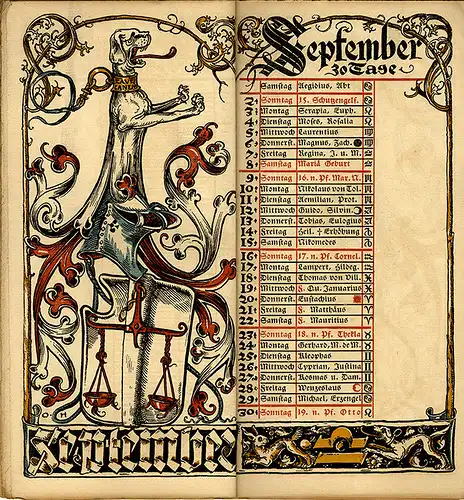 CAVE
CANEM
H
September
September
30 Tage
1 Samstag Aegidius, Abt
2 Sonntag 15. Schutzengelf.
3 Montag Serapia, Euph.
4 Dienstag Moses, Rosalia
5 Mittwoch Laurentius
6 Donnerst. Magnus, Zach.
7 Freitag Regina, J. u. M.
8 Samstag Mariä Geburt
9 Sonntag 16. n. Pf. Mar. N.
10 Montag Nikolaus von Tol.
11 Dienstag Aemilian, Prot.
12 Mittwoch Guido, Silvin.
13 Donnerst. Tobias, Eulogius
14 Freitag Heil. † Erhöhung
15 Samstag Nikomedes
16 Sonntag 17. n. Pf. Cornel.
17 Montag Lampert, Hildeg.
18 Dienstag Thomas von Vill.
19 Mittwoch F. Qu. Januarius
20 Donnerst. Eustachius
21 Freitag F. Matthäus
22 Samstag F. Mauritius
23 Sonntag 18. n. Pf. Thekla
24 Montag Gerhard, M. de M.
25 Dienstag Kleophas
26 Mittwoch Cyprian, Justina
27 Donnerst. Kosmas u. Dam.
28 Freitag Wenzeslaus
29 Samstag Michael, Erzengel
30 Sonntag 19. n. Pf. Otto